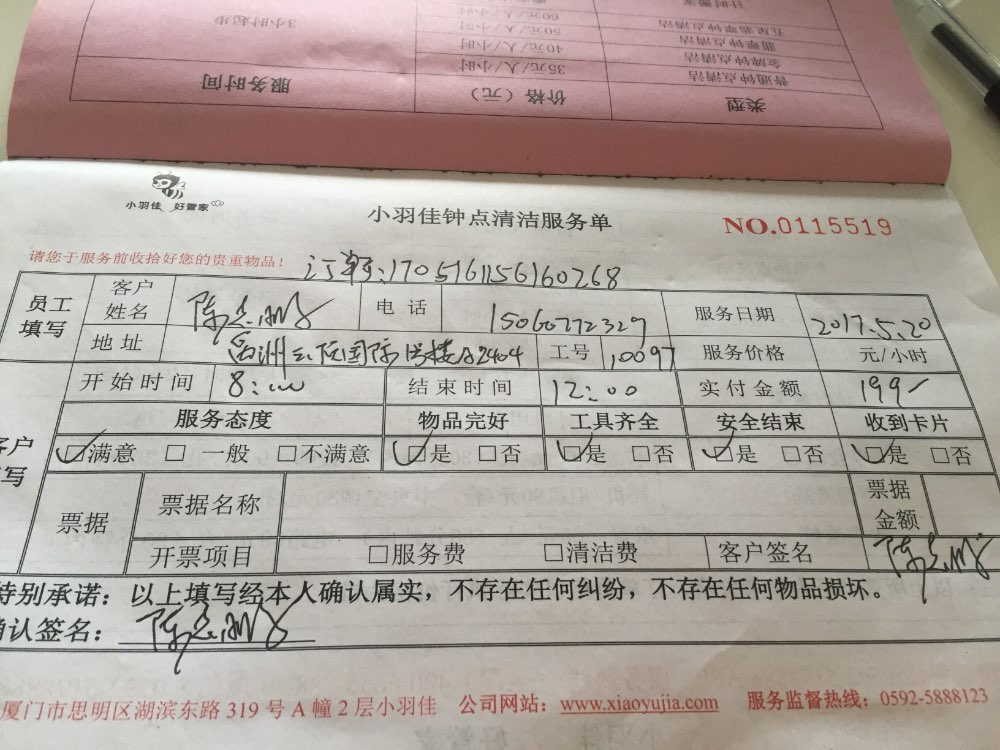 计时搬家
60元/人/小时
五星翡翠钟点清洁
50元/人/小时
3小时起步
翡翠钟点清洁
40元/人/小时
金牌钟点清洁
35元/人/小时
普通钟点清洁
类型 价格（元） 服务时间
小羽佳 好管家
小羽佳钟点清洁服务单
NO.0115519
请您于服务前收拾好您的贵重物品！
订单号:17051611556160268
员工填写 客户姓名 陈 电话 15060772329 服务日期 2017.5.20
地址 国际 A2404 工号 10097 服务价格 元/小时
开始时间 8:00 结束时间 12:00 实付金额 199
客户填写 服务态度 物品完好 工具齐全 安全结束 收到卡片
☑满意 □一般 □不满意 ☑是 □否 ☑是 □否 ☑是 □否 ☑是 □否
票据 票据名称 票据金额
开票项目 □服务费 □清洁费 客户签名 陈
特别承诺：以上填写经本人确认属实，不存在任何纠纷，不存在任何物品损坏。
确认签名：陈
厦门市思明区湖滨东路 319 号 A 幢 2 层小羽佳 公司网站：www.xiaoyujia.com 服务监督热线：0592-5888123